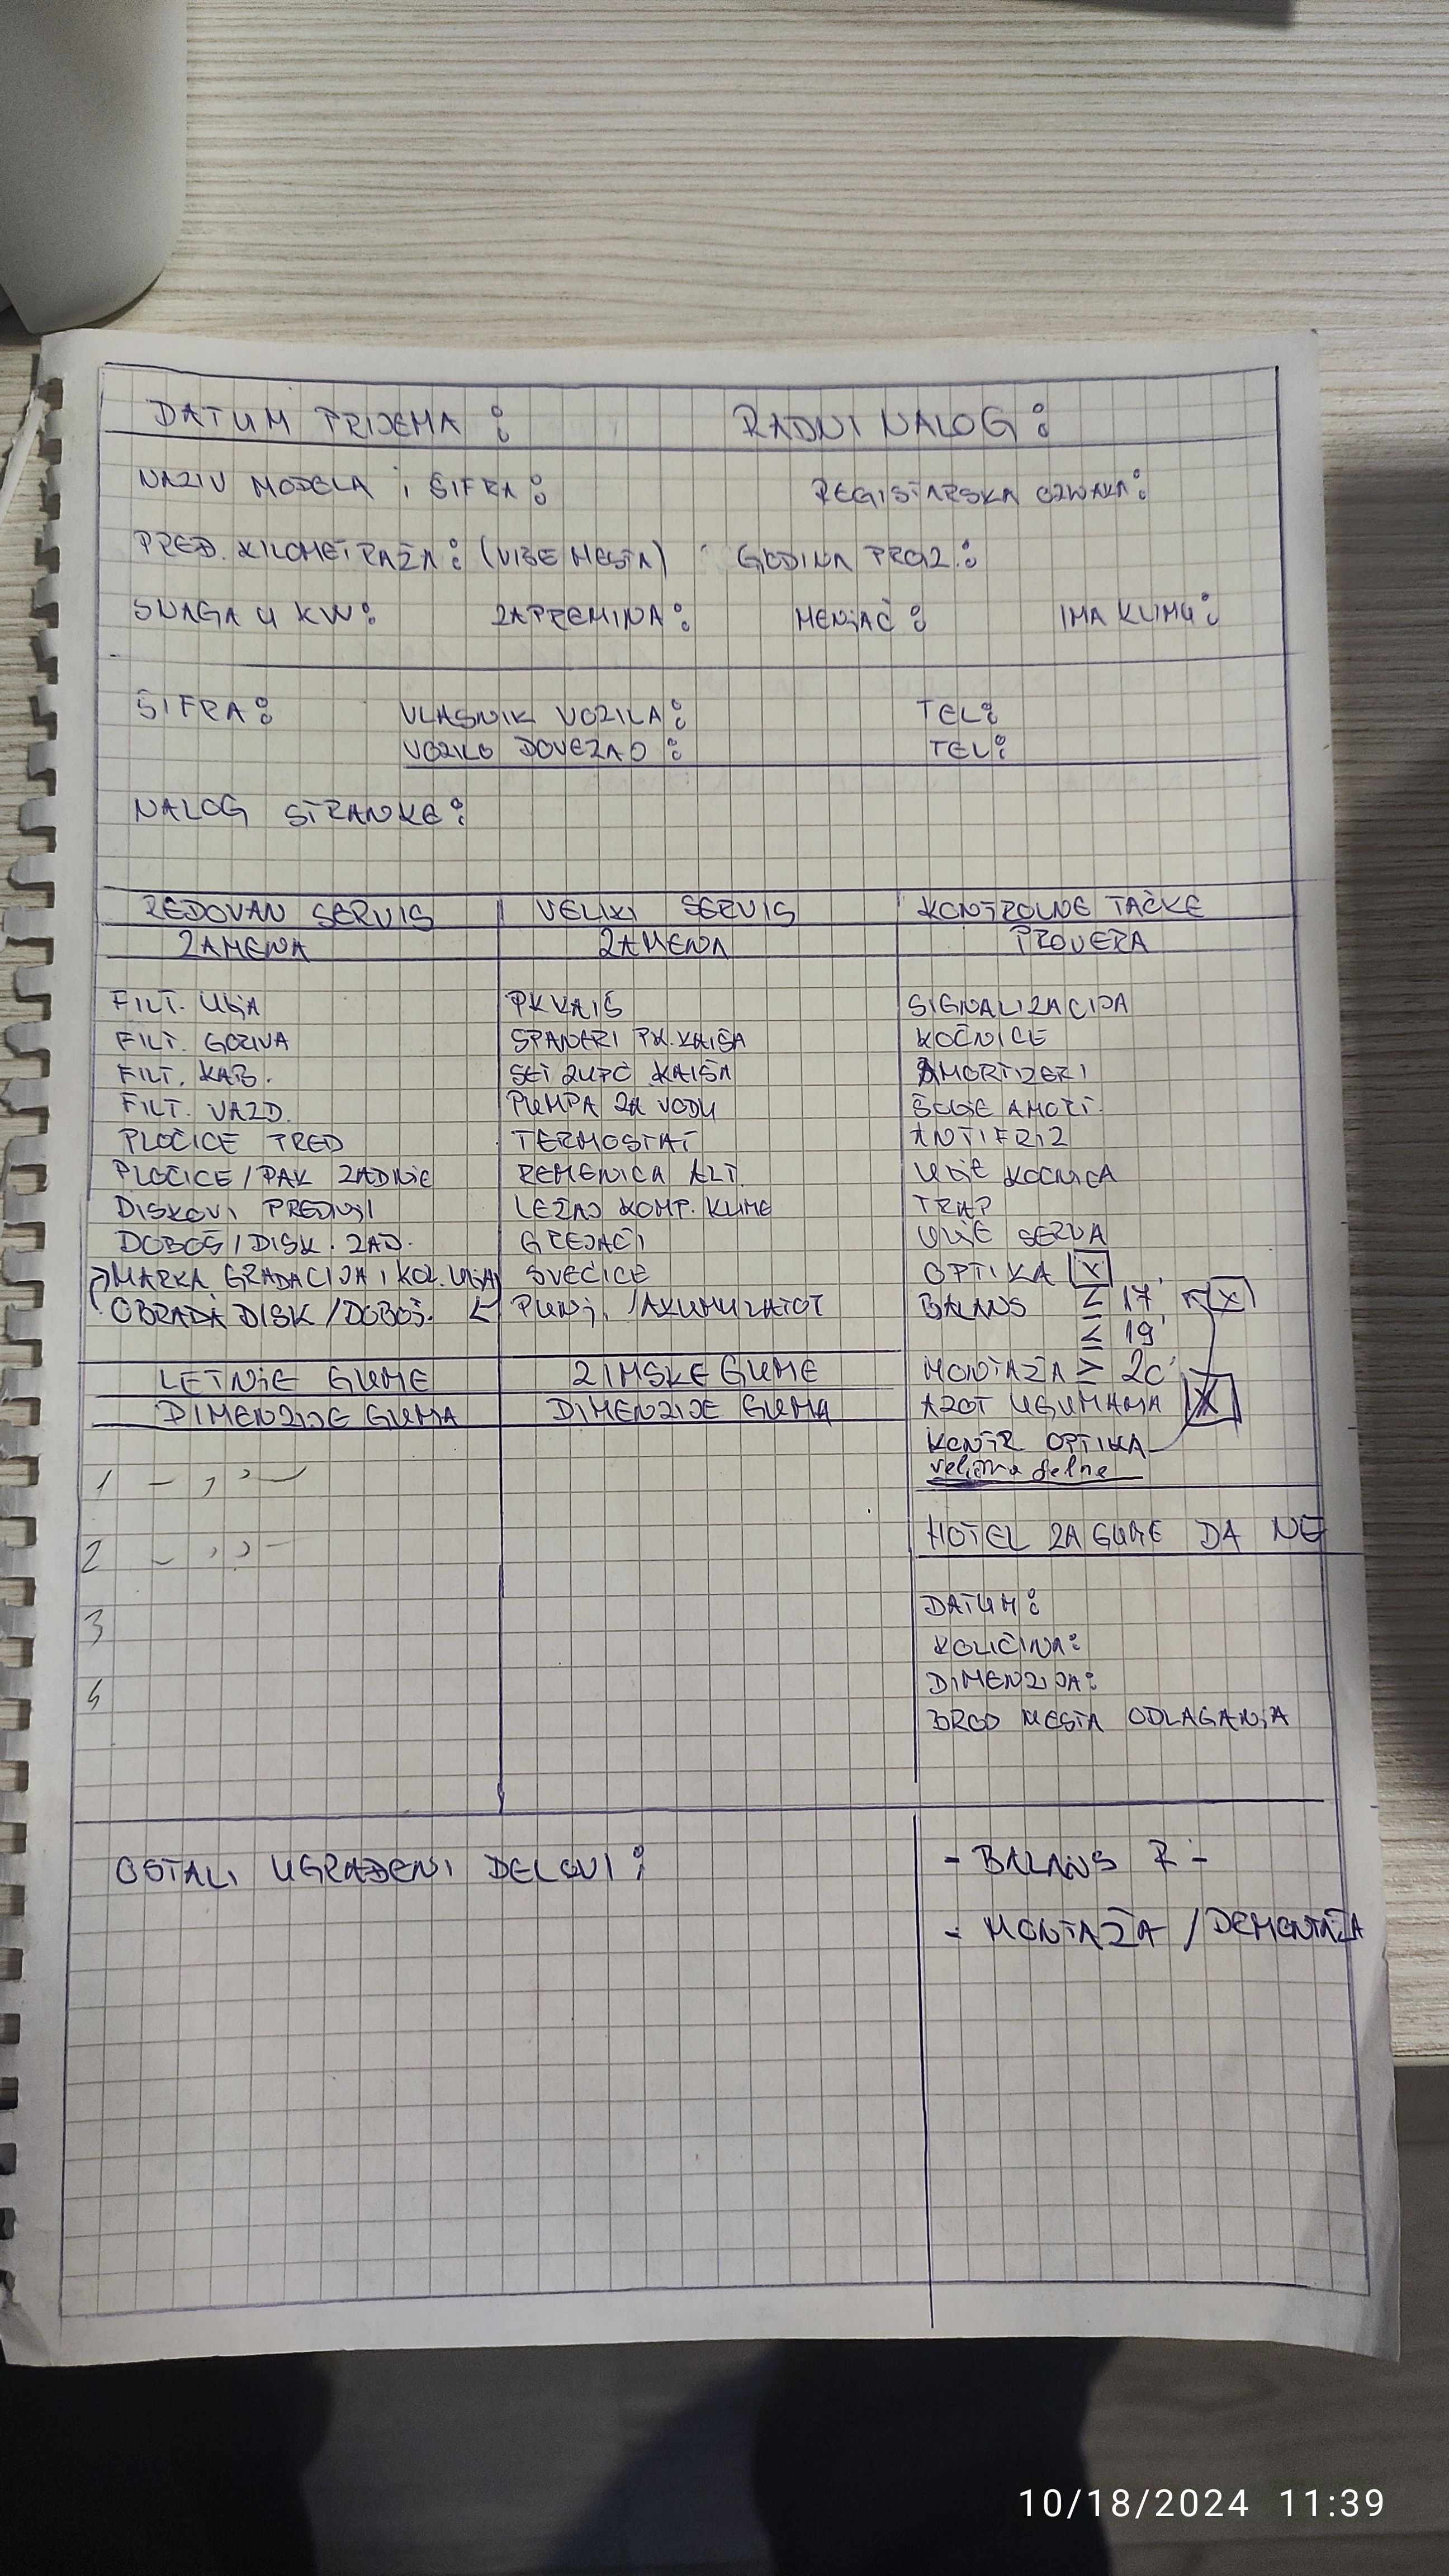 DATUM PRIJEMA : RADNI NALOG :
NAZIV MODELA I ŠIFRA : REGISTARSKA OZNAKA :
PRED. KILOMETRAŽA : (VIŠE MESTA) GODINA PROIZ. :
SNAGA U KW : ZAPREMINA : MENJAČ : IMA KLIMU :
ŠIFRA : VLASNIK VOZILA : TEL :
VOZILO DOVEZAO : TEL :
NALOG STRANKE :
REDOVAN SERVIS VELIKI SERVIS KONTROLNE TAČKE
ZAMENA ZAMENA PROVERA
FILT. ULJA PK KAIŠ SIGNALIZACIJA
FILT. GORIVA ŠPANERI PK. KAIŠA KOČNICE
FILT. KAB. SET ZUPČ KAIŠA AMORTIZERI
FILT. VAZD. PUMPA ZA VODU ŠOLJE AMORT.
PLOČICE PRED TERMOSTAT ANTIFRIZ
PLOČICE / PAK ZADNJE REMENICA ALT. ULJE KOČNICA
DISKOVI PREDNJI LEŽAJ KOMP. KLIME TRAP
DOBOŠ / DISK. ZAD. GREJAČI ULJE SERVA
MARKA, GRADACIJA I KOL. ULJA SVEĆICE OPTIKA X
OBRADA DISK / DOBOŠ. PUNJ. / AKUMULATOT BALANS ≤ 17 X
≤ 19
LETNJE GUME ZIMSKE GUME MONTAŽA ≥ 20
DIMENZIJE GUMA DIMENZIJE GUMA AZOT U GUMAMA X
KONTR OPTIKA
veličina felne
1
2
3
4
HOTEL ZA GUME DA NE
DATUM :
KOLIČINA :
DIMENZIJA :
BROJ MESTA ODLAGANJA
OSTALI UGRAĐENI DELOVI : - BALANS R -
- MONTAŽA / DEMONTAŽA
10/18/2024 11:39